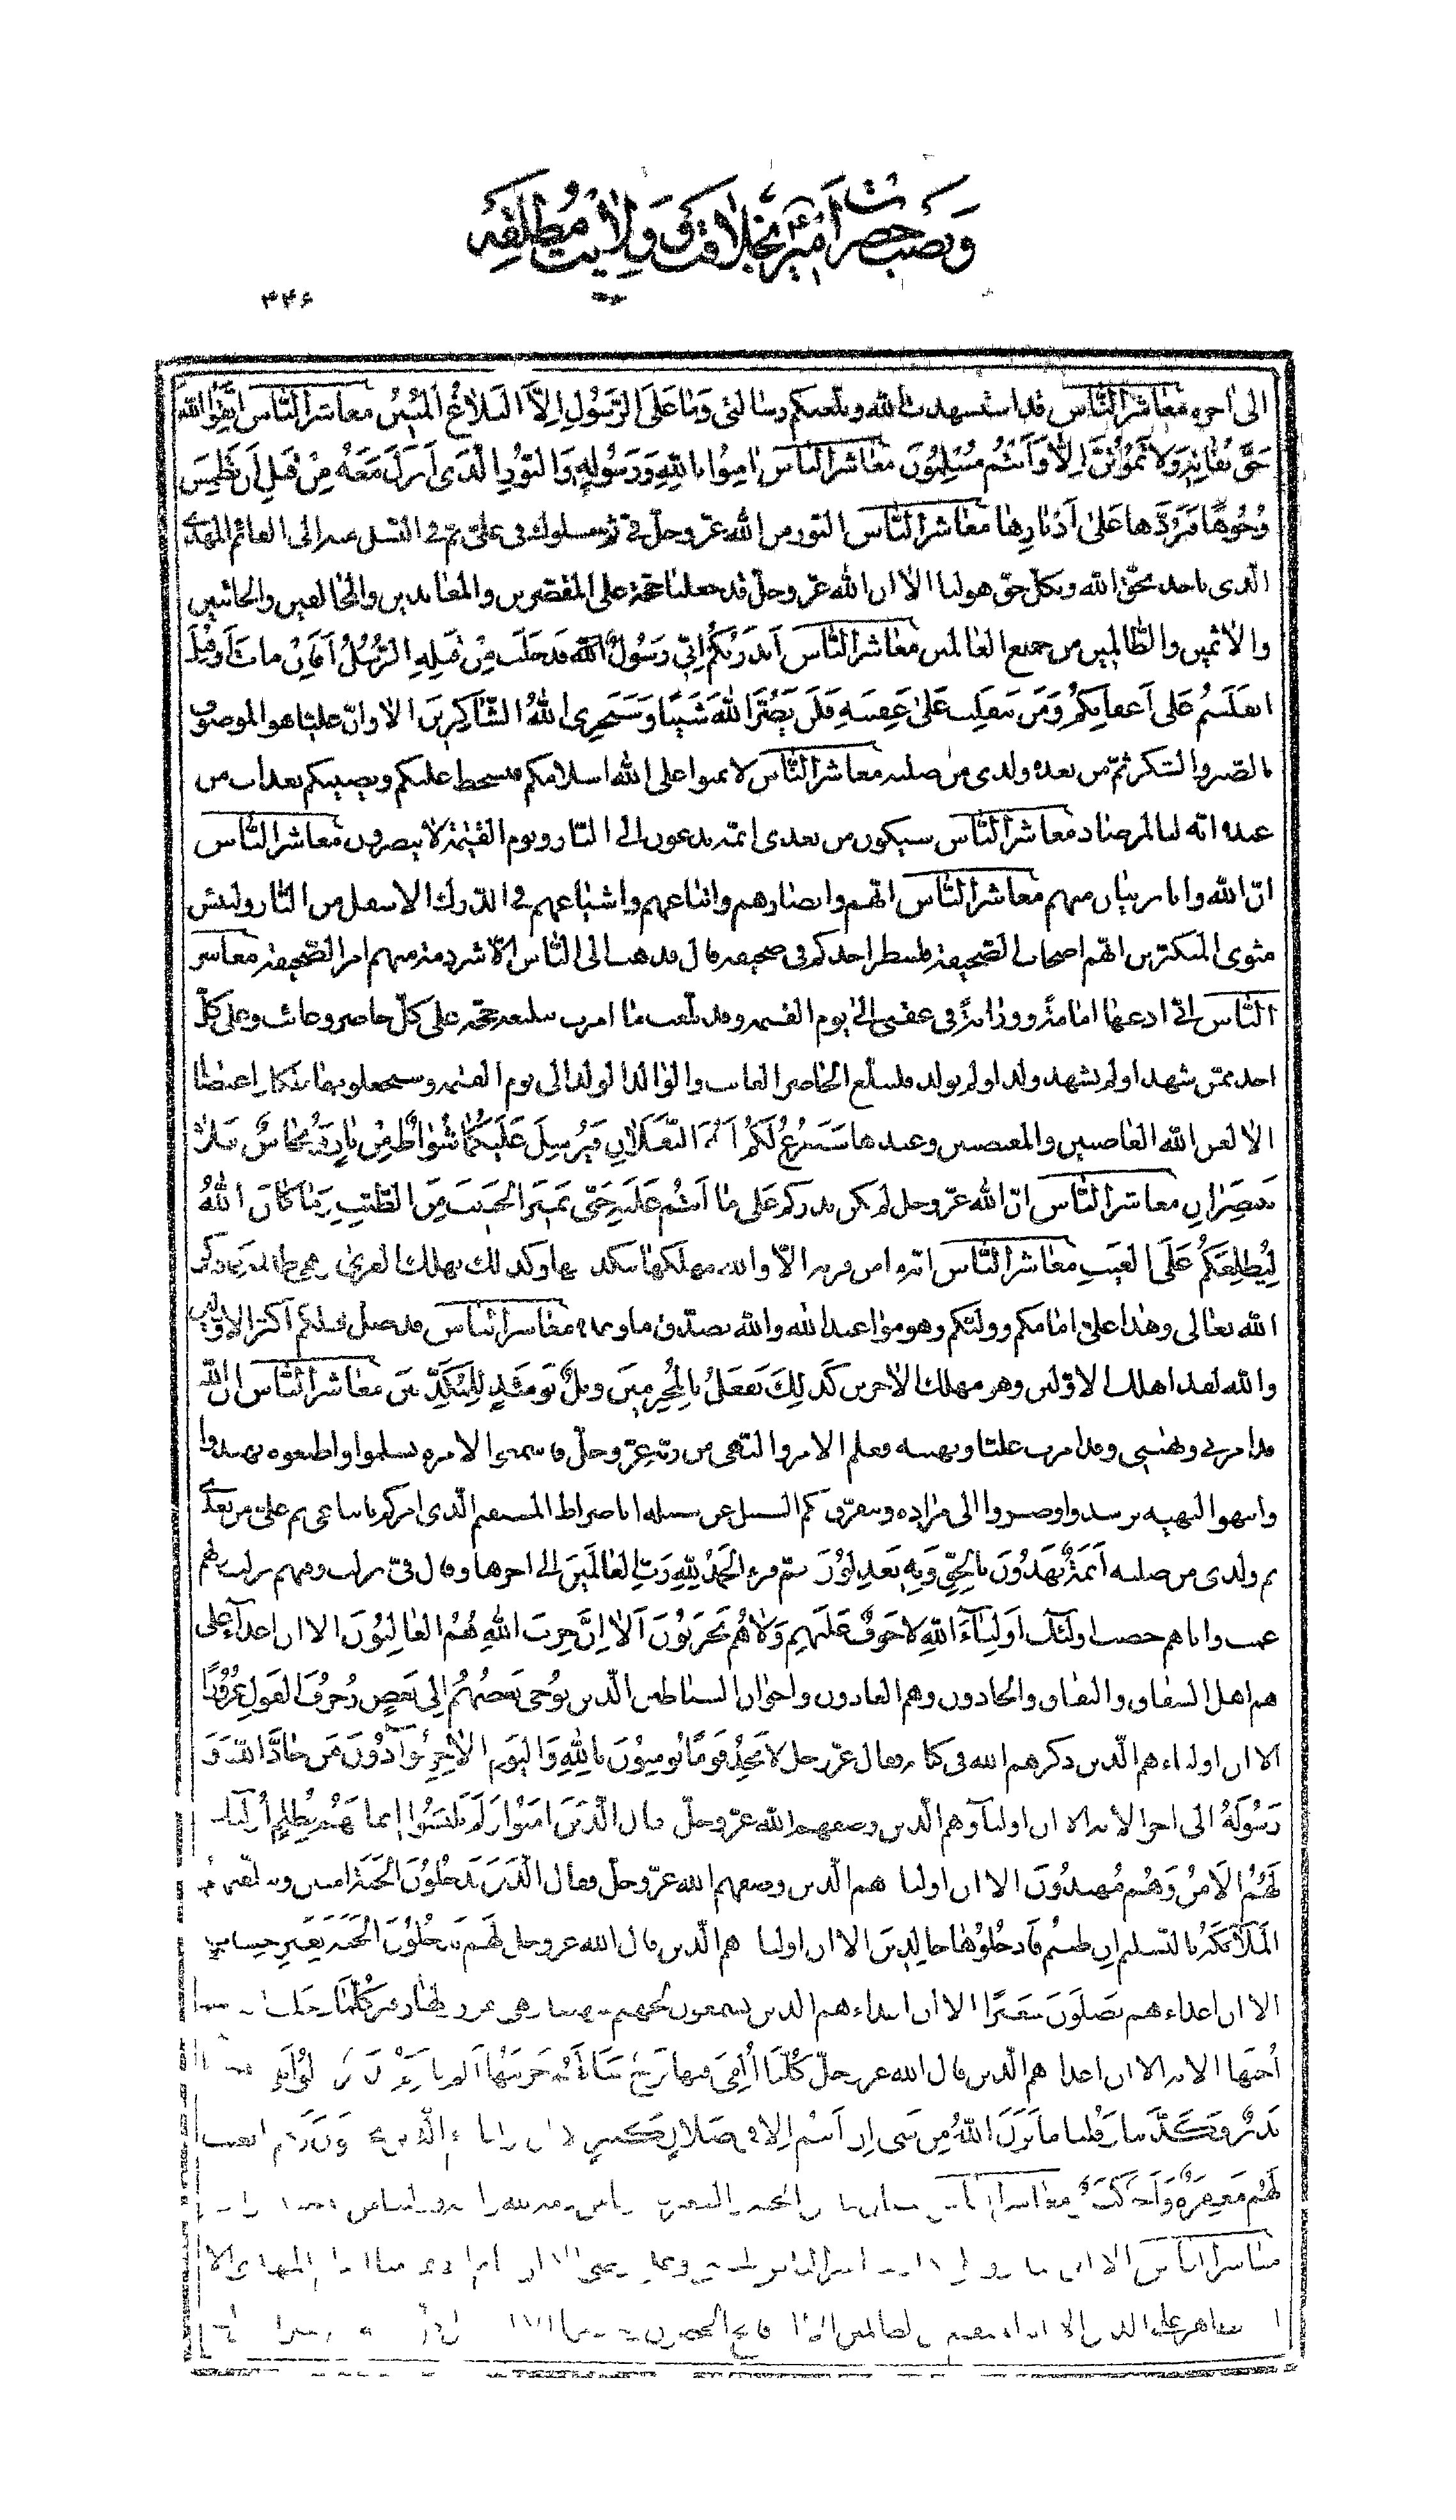 و نصب حضرت امیر ع بخلافت و ولایت مطلقه
۳۴۶
الی اخره معاشر النّاس قد استشهدت الله و بلّغتکم رسالتی وَمٰا عَلَی الرَّسُولِ اِلاَّ الْبَلاٰغُ الْمُبٖینُ معاشر النّاس اِتَّقُوا اللّٰهَ
حَقَّ تُقٰاتِهٖ وَلاٰ تَمُوتُنَّ اِلاّٰ وَاَنْتُمْ مُسْلِمُونَ معاشر النّاس اٰمِنُوا بِاللّٰهِ وَرَسُولِهٖ وَالنُّورِ الَّذی اُنْزِلَ مَعَهُ مِنْ قَبْلِ اَنْ نَطْمِسَ
وُجُوهًا فَنَرُدَّهٰا عَلیٰ اَدْبٰارِهٰا معاشر النّاس النّور من الله عزّ وجلّ فیّ ثمّ مسلوك فی علیّ ثمّ فی النّسل منه الی القائم المهدی
الّذی یاخذ بحقّ الله وبکلّ حقّ هو لنا الا ان الله عزّ وجلّ قد جعلنا حجّة علی المقصّرین والمعاندین والمخالفین والخائنین
والاٰثمین والظّالمین من جمیع العالمین معاشر النّاس اُنْذِرُکُمْ اِنّی رَسُولُ اللّٰهِ قَدْ خَلَتْ مِنْ قَبْلِهِ الرُّسُلُ اَفَاِنْ ماتَ اَوْ قُتِلَ
انْقَلَبْتُمْ عَلیٰ اَعْقابِکُمْ وَمَنْ یَنْقَلِبْ عَلیٰ عَقِبَیْهِ فَلَنْ یَضُرَّ اللّٰهَ شَیْئًا وَسَیَجْزِی اللّٰهُ الشّٰاکِرینَ الا وانّ علیّا هو الموصوف
بالصّبر والشّکر ثمّ من بعده ولدی من صلبه معاشر النّاس لا تمنّوا علی الله اسلامکم فیسخط علیکم ویصیبکم بعذاب من
عنده انّه لبالمرصاد معاشر النّاس سیکون من بعدی ائمّة یدعون الی النّار ویوم القیٰمة لا ینصرون معاشر النّاس
انّ الله وانا بریئان منهم معاشر النّاس انّهم وانصارهم واتباعهم واشیاعهم فی الدّرك الاسفل من النّار ولبئس
مثوی المتکبّرین الا انّهم اصحاب الصّحیفة فلینظر احدکم فی صحیفته قال فذهب الی النّاس الاّ شرذمة منهم امر الصّحیفة معاشر
النّاس انّی ادعها امامةً ووراثةً فی عقبی الی یوم القیمة وقد بلّغت ما امرت بتبلیغه حجّة علی کلّ حاضر وغائب وعلی کلّ
احد ممّن شهد او لم یشهد ولد او لم یولد فلیبلّغ الحاضر الغائب والوالد الولد الی یوم القیمة وسیجعلونها ملکا اغتصابا
الا لعن الله الغاصبین والمغتصبین وعندها سَنَفْرُغُ لَکُمْ اَیُّهَ الثَّقَلاٰنِ فَیُرْسَلُ عَلَیْکُمٰا شُوٰاظٌ مِنْ نٰارٍ وَنُحٰاسٌ فَلاٰ
تَنْتَصِرٰانِ معاشر النّاس انّ الله عزّ وجل لم یکن یذرکم عَلیٰ مٰا اَنْتُمْ عَلَیْهِ حَتّیٰ یَمیزَ الْخَبیثَ مِنَ الطَّیِّبِ وَمٰا کٰانَ اللّٰهُ
لِیُطْلِعَکُمْ عَلَی الْغَیْبِ معاشر النّاس انّه ما من قریة الاّ والله مهلکها بتکذیبها وکذلك یهلك القری وهی ظالمة کما ذکر
الله تعالی وهذا علیّ امامکم وولیّکم وهو مواعید الله والله یصدّق ما وعده معاشر النّاس قد ضلّ قبلکم اکثر الاوّلین
والله لقد اهلك الاوّلین وهو مهلك الاخرین کَذٰلِكَ نَفْعَلُ بِالْمُجْرِمینَ وَیْلٌ یَوْمَئِذٍ لِلْمُکَذِّبینَ معاشر النّاس ان الله
قد امرنی ونهانی وقد امرت علیّا ونهیته فعلم الامر والنّهی من ربّه عزّ وجلّ فاسمعوا لامره تسلموا واطیعوه تهتدوا
وانتهوا لنهیه ترشدوا وصیروا الی مراده ولا تتفرّق بکم السّبل عن سبیله انا صراط الله المستقیم الّذی امرکم باتباعه ثم علیّ من بعدی
ثم ولدی من صلبه اَئِمَّةٌ یَهْدُونَ بِالْحَقِّ وَبِهٖ یَعْدِلُونَ ثمّ قرء اَلْحَمْدُ لِلّٰهِ رَبِّ الْعٰالَمینَ الی اخرها وقال فیّ نزلت وفیهم نزلت ولهم
عمّت وایاهم خصّت اولئك اَوْلِیٰاءُ اللّٰهِ لاٰ خَوْفٌ عَلَیْهِمْ وَلاٰ هُمْ یَحْزَنُونَ اَلاٰ اِنَّ حِزْبَ اللّٰهِ هُمُ الْغٰالِبُونَ الا ان اعداء علی
هم اهل الشقاق والنفاق والحادّون وهم العادون واخوان الشیاطین الّذین یُوحی بَعْضُهُمْ اِلیٰ بَعْضٍ زُخْرُفَ الْقَوْلِ غُرُورًا
الا ان اولیاءهم الّذین ذکرهم الله فی کتابه فقال عزّ وجل لاٰ تَجِدُ قَوْمًا یُؤْمِنُونَ بِاللّٰهِ وَالْیَوْمِ الْاٰخِرِ یُوٰادُّونَ مَنْ حٰادَّ اللّٰهَ وَ
رَسُولَهُ الی اخر الایة الا ان اولیآءهم الّذین وصفهم الله عزّ وجلّ فقال الَّذینَ اٰمَنُوا وَلَمْ یَلْبِسُوا ایمانَهُمْ بِظُلْمٍ اُولٰئِكَ
لَهُمُ الْاَمْنُ وَهُمْ مُهْتَدُونَ الا ان اولیاءهم الّذین وصفهم الله عزّ وجلّ فقال الّذین یَدْخُلُونَ الْجَنَّةَ امنین وتتلقّیهم
الْمَلاٰئِکَةُ بالتسلیم ان طِبْتُمْ فَادْخُلُوهٰا خالِدینَ الا ان اولیاءهم الّذین قال الله عز وجل لهم یَدْخُلُونَ الْجَنَّةَ بِغَیْرِ حِسابٍ
الا ان اعداءهم یَصْلَوْنَ سَعیرًا الا ان اعداءهم الذین یسمعون لجهنم شهیقا وهی تفور ولها زفیر کُلَّمٰا دَخَلَتْ اُمَّةٌ لَعَنَتْ
اُخْتَهٰا الایة الا ان اعداءهم الّذین قال الله عز وجلّ کُلَّمٰا اُلْقِیَ فیها فَوْجٌ سَأَلَهُمْ خَزَنَتُهٰا اَلَمْ یَأْتِکُمْ نَذیرٌ قٰالُوا بَلیٰ
نَذیرٌ فَکَذَّبْنا وَقُلْنا ما نَزَّلَ اللّٰهُ مِنْ شَیْءٍ اِنْ اَنْتُمْ اِلاّٰ فی ضَلالٍ کَبیرٍ
لَهُمْ مَغْفِرَةٌ وَاَجْرٌ کَبیرٌ معاشر النّاس
معاشر الناس الا وانی